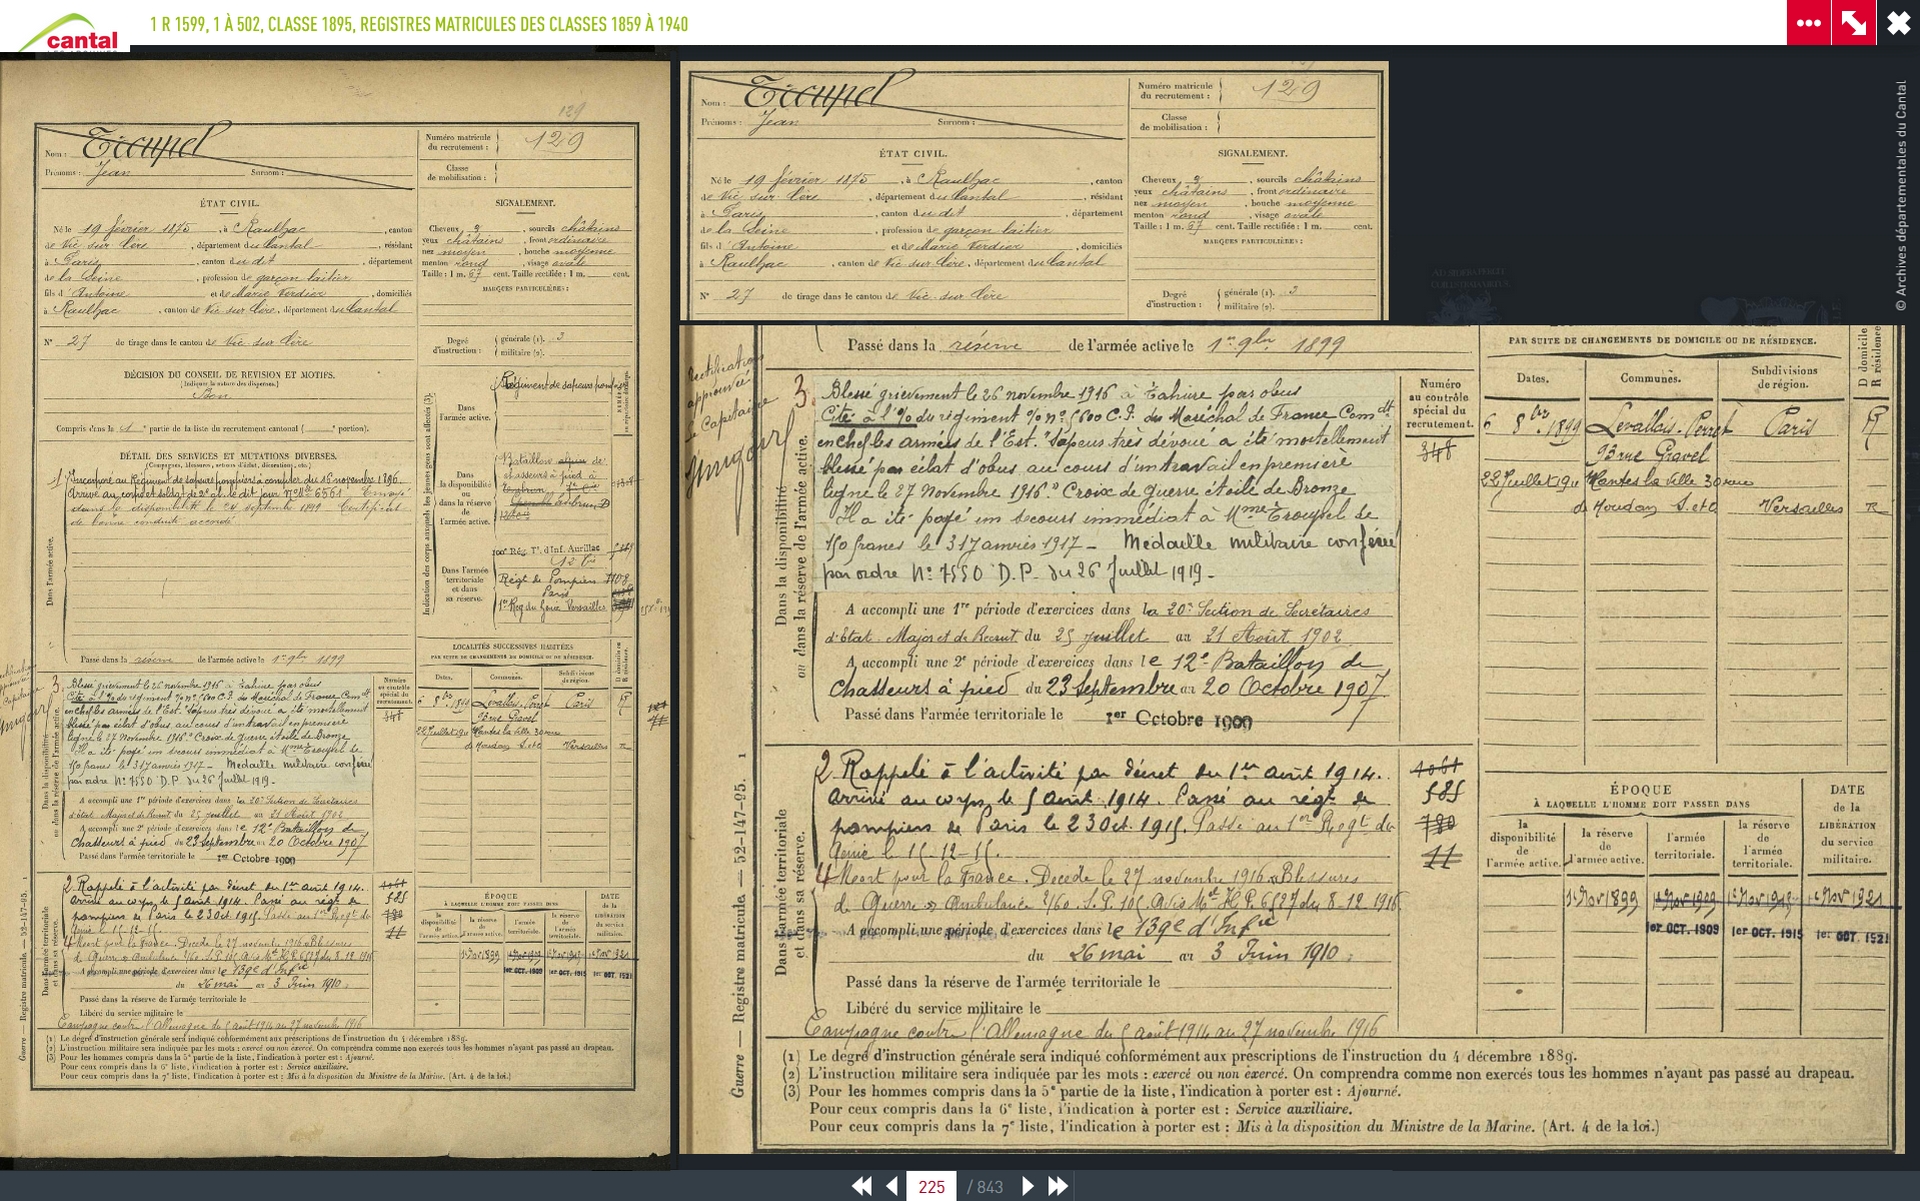 1 R 1599, 1 À 502, CLASSE 1895, REGISTRES MATRICULES DES CLASSES 1859 À 1940
cantal
© Archives départementales du Cantal
129
Nom :
Prénoms : Jean Surnom :
Numéro matricule du recrutement : 129
Classe de mobilisation :
ÉTAT CIVIL.
Né le 19 février 1875, à Raulhac, canton
de Vic sur Cère, département du Cantal, résidant
à Paris, canton du dit, département
de la Seine, profession de garçon laitier
fils d'Antoine et de Marie Verdier, domiciliés
à Raulhac, canton de Vic sur Cère, département du Cantal
N° 27 de tirage dans le canton de Vic sur Cère
SIGNALEMENT.
Cheveux sourcils châtains
yeux châtains, front ordinaire
nez moyen, bouche moyenne
menton rond, visage ovale
Taille : 1 m. 67 cent. Taille rectifiée : 1 m. cent.
MARQUES PARTICULIÈRES :
Degré d'instruction : générale (1). 3
militaire (2).
DÉCISION DU CONSEIL DE REVISION ET MOTIFS.
(Indiquer la nature des dispenses.)
Bon
Compris dans la 1e partie de la liste du recrutement cantonal ( portion).
DÉTAIL DES SERVICES ET MUTATIONS DIVERSES.
(Campagnes, blessures, actions d'éclat, décorations, etc.)
Incorporé au Régiment de sapeurs pompiers à compter du 16 novembre 1896.
Arrivé au corps et soldat de 2e cl. le dit jour N° Mle 6561 Envoyé
dans la disponibilité le 24 septembre 1899 Certificat
de bonne conduite accordé
Dans l'armée active.
Indication des corps auxquels les jeunes gens sont affectés (3).
Dans l'armée active.
Régiment de sapeurs pompiers
Dans la disponibilité ou dans la réserve de l'armée active.
Bataillon alpin de
chasseurs à pied à
Dans l'armée territoriale et dans sa réserve.
100e Rég. T. d'Inf. Aurillac
Régt de Pompiers
Paris
1er Rég du Génie Versailles
LOCALITÉS SUCCESSIVES HABITÉES
PAR SUITE DE CHANGEMENTS DE DOMICILE OU DE RÉSIDENCE.
Dates. Communes. Subdivisions de région. D domicile R résidence.
8bre 1899 Levallois-Perret Paris
93 rue Gravel
22 Juillet 1911 Mantes la ville 30 rue
de Houdan S. et O Versailles R
Rectification approuvée
Le Capitaine
Passé dans la réserve de l'armée active le 1er 9bre 1899
Dans la disponibilité ou dans la réserve de l'armée active.
3. Blessé grièvement le 26 novembre 1916 à Tahure par obus
Cité à l'% du régiment % n° 5600 C.P. du Maréchal de France Comdt
en chef les armées de l'Est. "Sapeur très dévoué a été mortellement
blessé par éclat d'obus au cours d'un travail en première
ligne le 27 Novembre 1916." Croix de guerre étoile de Bronze
Il a été payé un secours immédiat à Mme Troupel de
150 francs le 31 Janvier 1917 - Médaille militaire conférée
par ordre N° 7550 D.P. du 26 Juillet 1919.
Numéro au contrôle spécial du recrutement.
348
A accompli une 1re période d'exercices dans la 20e Section de Secrétaires
d'État Major et de Recrut du 25 juillet au 21 Août 1902
A accompli une 2e période d'exercices dans le 12e Bataillon de
Chasseurs à pied du 23 Septembre au 20 Octobre 1907
Passé dans l'armée territoriale le 1er Octobre 1909
Dans l'armée territoriale et dans sa réserve.
2 Rappelé à l'activité par décret du 1er août 1914.
Arrivé au corps le 5 août 1914. Passé au régt de
pompiers de Paris le 23 Oct. 1915. Passé au 1er Régt du
Génie le 15-12-15.
4 Mort pour la France. Décédé le 27 novembre 1916 Blessures
de Guerre Ambulance 2/60. S.P. 105 Avis Mel H.P. 6527 du 8-12-1916
A accompli une période d'exercices dans le 139e d'Infie
du 26 mai au 3 Juin 1910
Passé dans la réserve de l'armée territoriale le
Libéré du service militaire le
Campagne contre l'Allemagne du 5 août 1914 au 27 novembre 1916
585
ÉPOQUE
À LAQUELLE L'HOMME DOIT PASSER DANS
la disponibilité de l'armée active.
la réserve de l'armée active.
l'armée territoriale.
la réserve de l'armée territoriale.
DATE de la LIBÉRATION du service militaire.
1er Nov 1899 1er Nov 1909 1er Nov 1921
1er OCT. 1909 1er OCT. 1915 1er OCT. 1921
(1) Le degré d'instruction générale sera indiqué conformément aux prescriptions de l'instruction du 4 décembre 1889.
(2) L'instruction militaire sera indiquée par les mots : exercé ou non exercé. On comprendra comme non exercés tous les hommes n'ayant pas passé au drapeau.
(3) Pour les hommes compris dans la 5e partie de la liste, l'indication à porter est : Ajourné.
Pour ceux compris dans la 6e liste, l'indication à porter est : Service auxiliaire.
Pour ceux compris dans la 7e liste, l'indication à porter est : Mis à la disposition du Ministre de la Marine. (Art. 4 de la loi.)
Guerre — Registre matricule. — 52-147-95. 1
225 / 843